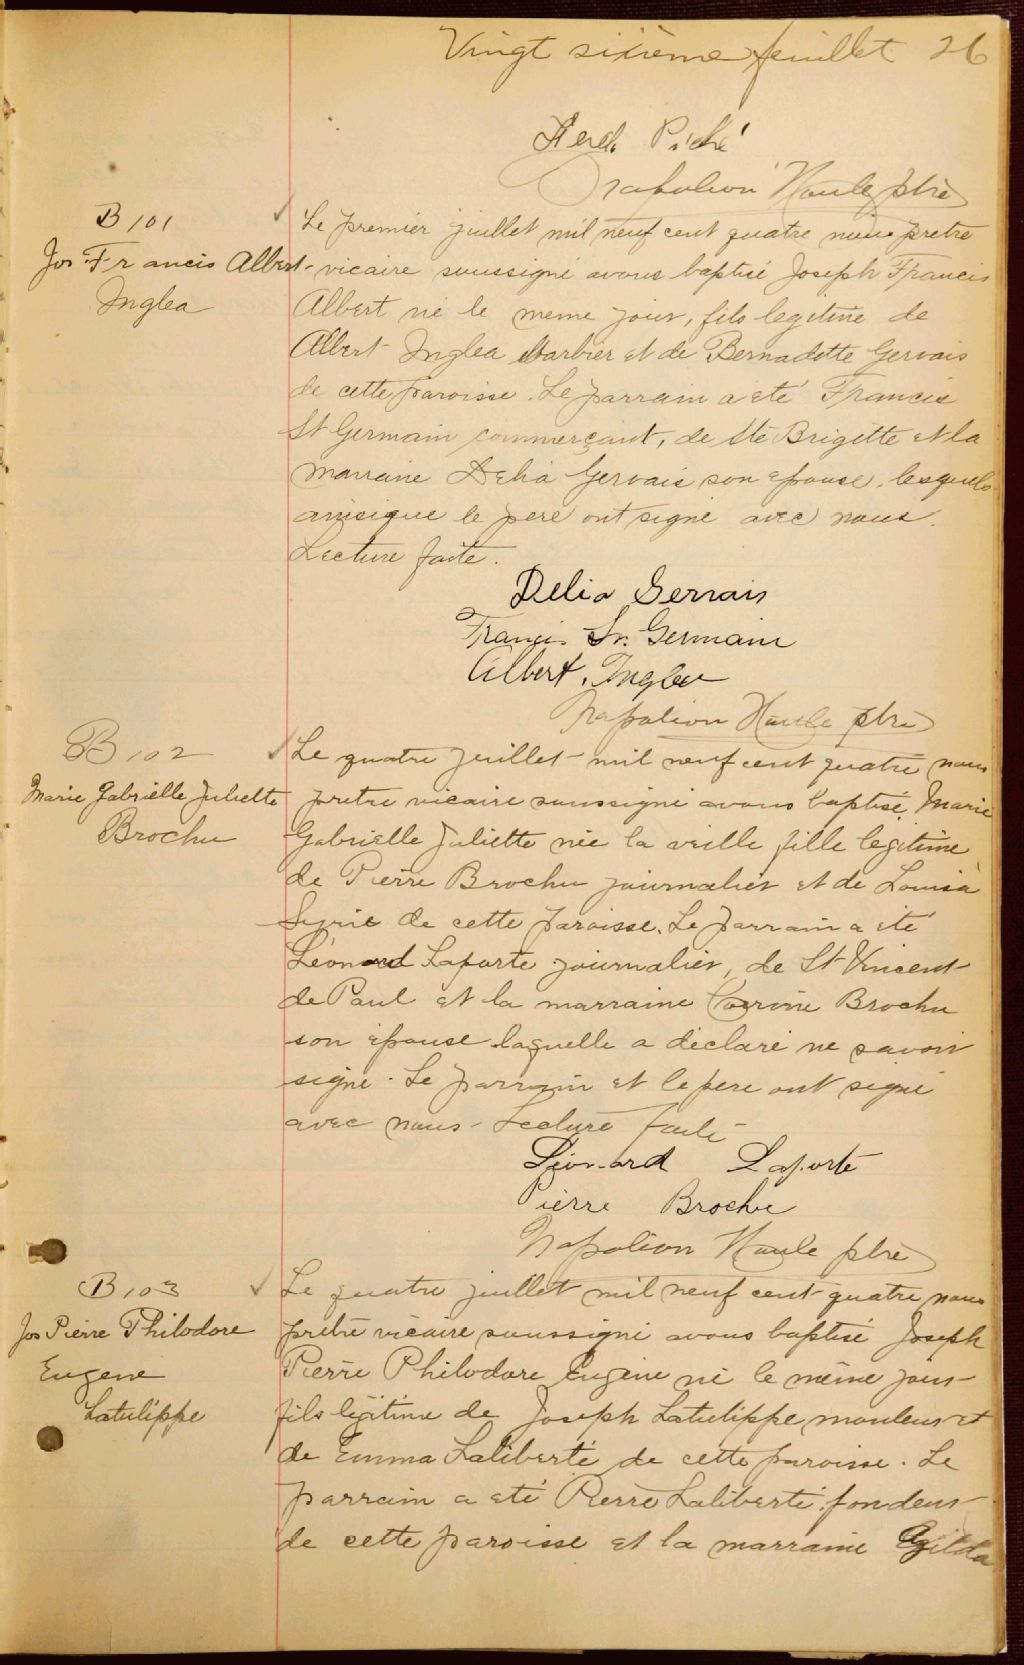 Vingt sixième feuillet 26
Ferd. Piché
Napoléon Houle ptre
B 101
Jos Francis Albert
Inglea
Le premier juillet mil neuf cent quatre nous pretre
vicaire soussigné avons baptisé Joseph Francis
Albert né le meme jour, fils legitime de
Albert Inglea barbier et de Bernadette Gervais
de cette paroisse. Le parrain a eté Francis
St Germain commerçant, de Ste Brigitte et la
marraine Delia Gervais son epouse, lesquels
ainsique le pere ont signé avec nous.
Lecture faite.
Delia Gervais
Francis St. Germain
Albert. Inglea
Napoléon Houle ptre
B 102
Marie Gabrielle Juliette
Brochu
Le quatre juillet mil neuf cent quatre nous
pretre vicaire soussigné avons baptisé Marie
Gabrielle Juliette née la veille fille legitime
de Pierre Brochu journalier et de Louisa
de cette paroisse. Le parrain a été
Léonard Laporte journalier, de St Vincent
de Paul et la marraine Brochu
son épouse laquelle a déclaré ne savoir
signé. Le parrain et le pere ont signé
avec nous - Lecture faite
Léonard Laporte
Pierre Brochu
Napoléon Houle ptre
B 103
Jos Pierre Philodore
Eugene
Latulippe
Le quatre juillet mil neuf cent quatre nous
pretre vicaire soussigné avons baptisé Joseph
Pierre Philodore Eugène né le même jour
fils légitime de Joseph Latulippe mouleur et
de Emma Laliberté de cette paroisse. Le
parrain a eté Pierre Laliberté fondeur
de cette paroisse et la marraine Agilda